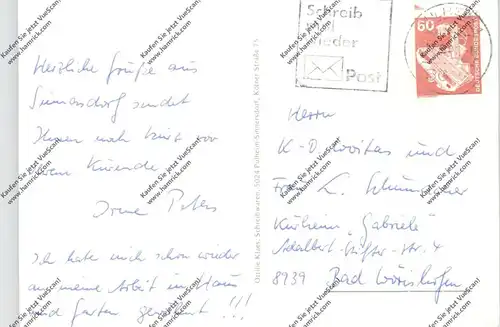 Schreib
mal
wieder
Post
60
DEUTSCHE BUNDESPOST
Herzliche Grüße aus
Sinnersdorf sendet
Ihnen noch kurz vor
dem Kurende
Irene Peters
Ich habe mich schon wieder
auf meine Arbeit in Haus
und Garten gefreut !!!
Ottilie Klaes, Schreibwaren, 5024 Pulheim-Sinnersdorf, Kölner Straße 75
Herrn
K-O. und
Frau K. Schumacher
Kurheim "Gabriele"
Adalbert-Stifter-str. 4
8939 Bad Wörishofen
Kaufen Sie jetzt VueScan!
www.hamrick.com